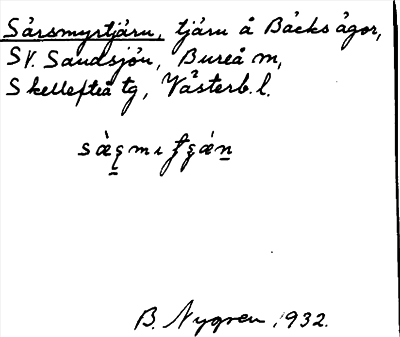 Sårsmyrtjärn, tjärn å Bäcks ägor,
SV. Sandsjön, Bureå sn,
Skellefteå tg, Västerb. l.
B. Nygren, 1932.